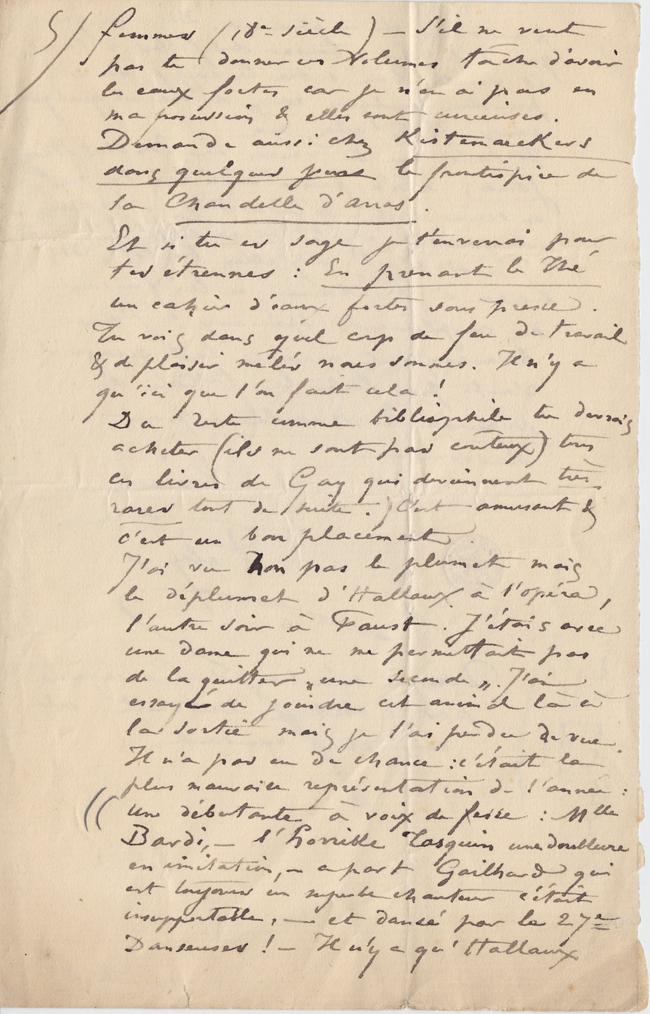 5/ femmes (18e siècle) – S'il ne veut
pas te donner ces Volumes tâche d'avoir
les eaux fortes car je n'en ai pas en
ma possession & elles sont curieuses.
Demande aussi chez Kistemaeckers
dans quelques jours le frontispice de
la Chandelle d'Arras.
Et si tu es sage je t'enverrai pour
tes étrennes : En prenant le Thé
un cahier d'eaux fortes sous presse.
Tu vois dans quel coup de feu de travail
& de plaisir mêlés nous sommes. Il n'y a
qu'ici que l'on fait cela !
Du reste comme bibliophile tu devrais
acheter (ils ne sont pas coûteux) tous
ces livres de Gay qui deviennent très
rares tout de suite. C'est amusant &
c'est un bon placement.
J'ai vu non pas le plumet mais
le déplumet d'Hallaux à l'opéra,
l'autre soir à Faust. J'étais avec
une dame qui ne me permettait pas
de la quitter „une seconde„. J'ai
essayé de joindre cet animal là à
la sortie mais je l'ai perdu de vue.
Il n'a pas eu de chance : c'était la
plus mauvaise représentation de l'année :
une débutante à voix de fesse : Mlle
Bardi, – l'horrible Tasquin une doublure
en imitation, – a part Gailhard qui
est toujours un superbe chanteur c'était
insupportable, – et dansé par les 27e
Danseuses ! – Il n'y a qu'Hallaux